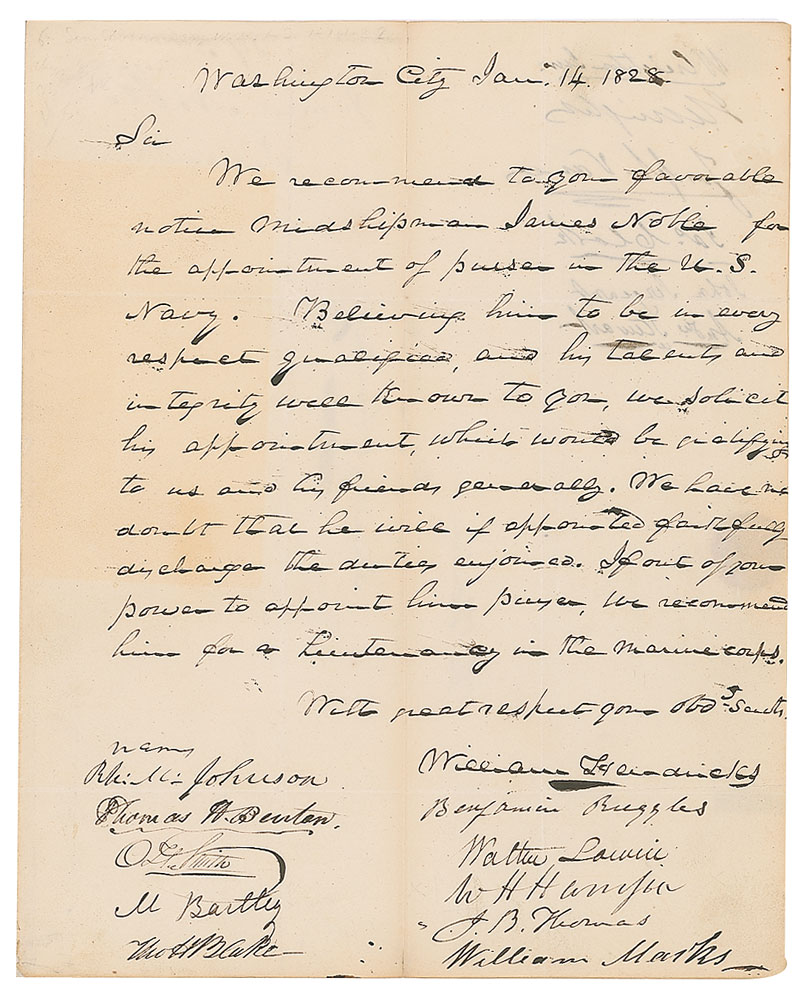 Washington City Jan. 14. 1828
Sir
We recommend to your favorable
notice Midshipman James Noble for
the appointment of purser in the U.S.
Navy. Believing him to be in every
respect qualified, and his talents and
integrity well known to you, we solicit
his appointment, which would be gratifying
to us and his friends generally. We have no
doubt that he will if appointed faithfully
discharge the duties enjoined. If out of your
power to appoint him purser, we recommend
him for a Lieutenancy in the marine corps.
With great respect your obds Servts.
names
Rh: M: Johnson
Thomas H. Benton.
O. H. Smith
M Bartley
Tho H Blake
William Hendricks
Benjamin Ruggles
Walter Lowrie
W H Harrison
J. B. Thomas
William Marks